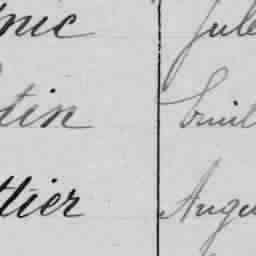 nic Jule
tin Emil
tier Augu